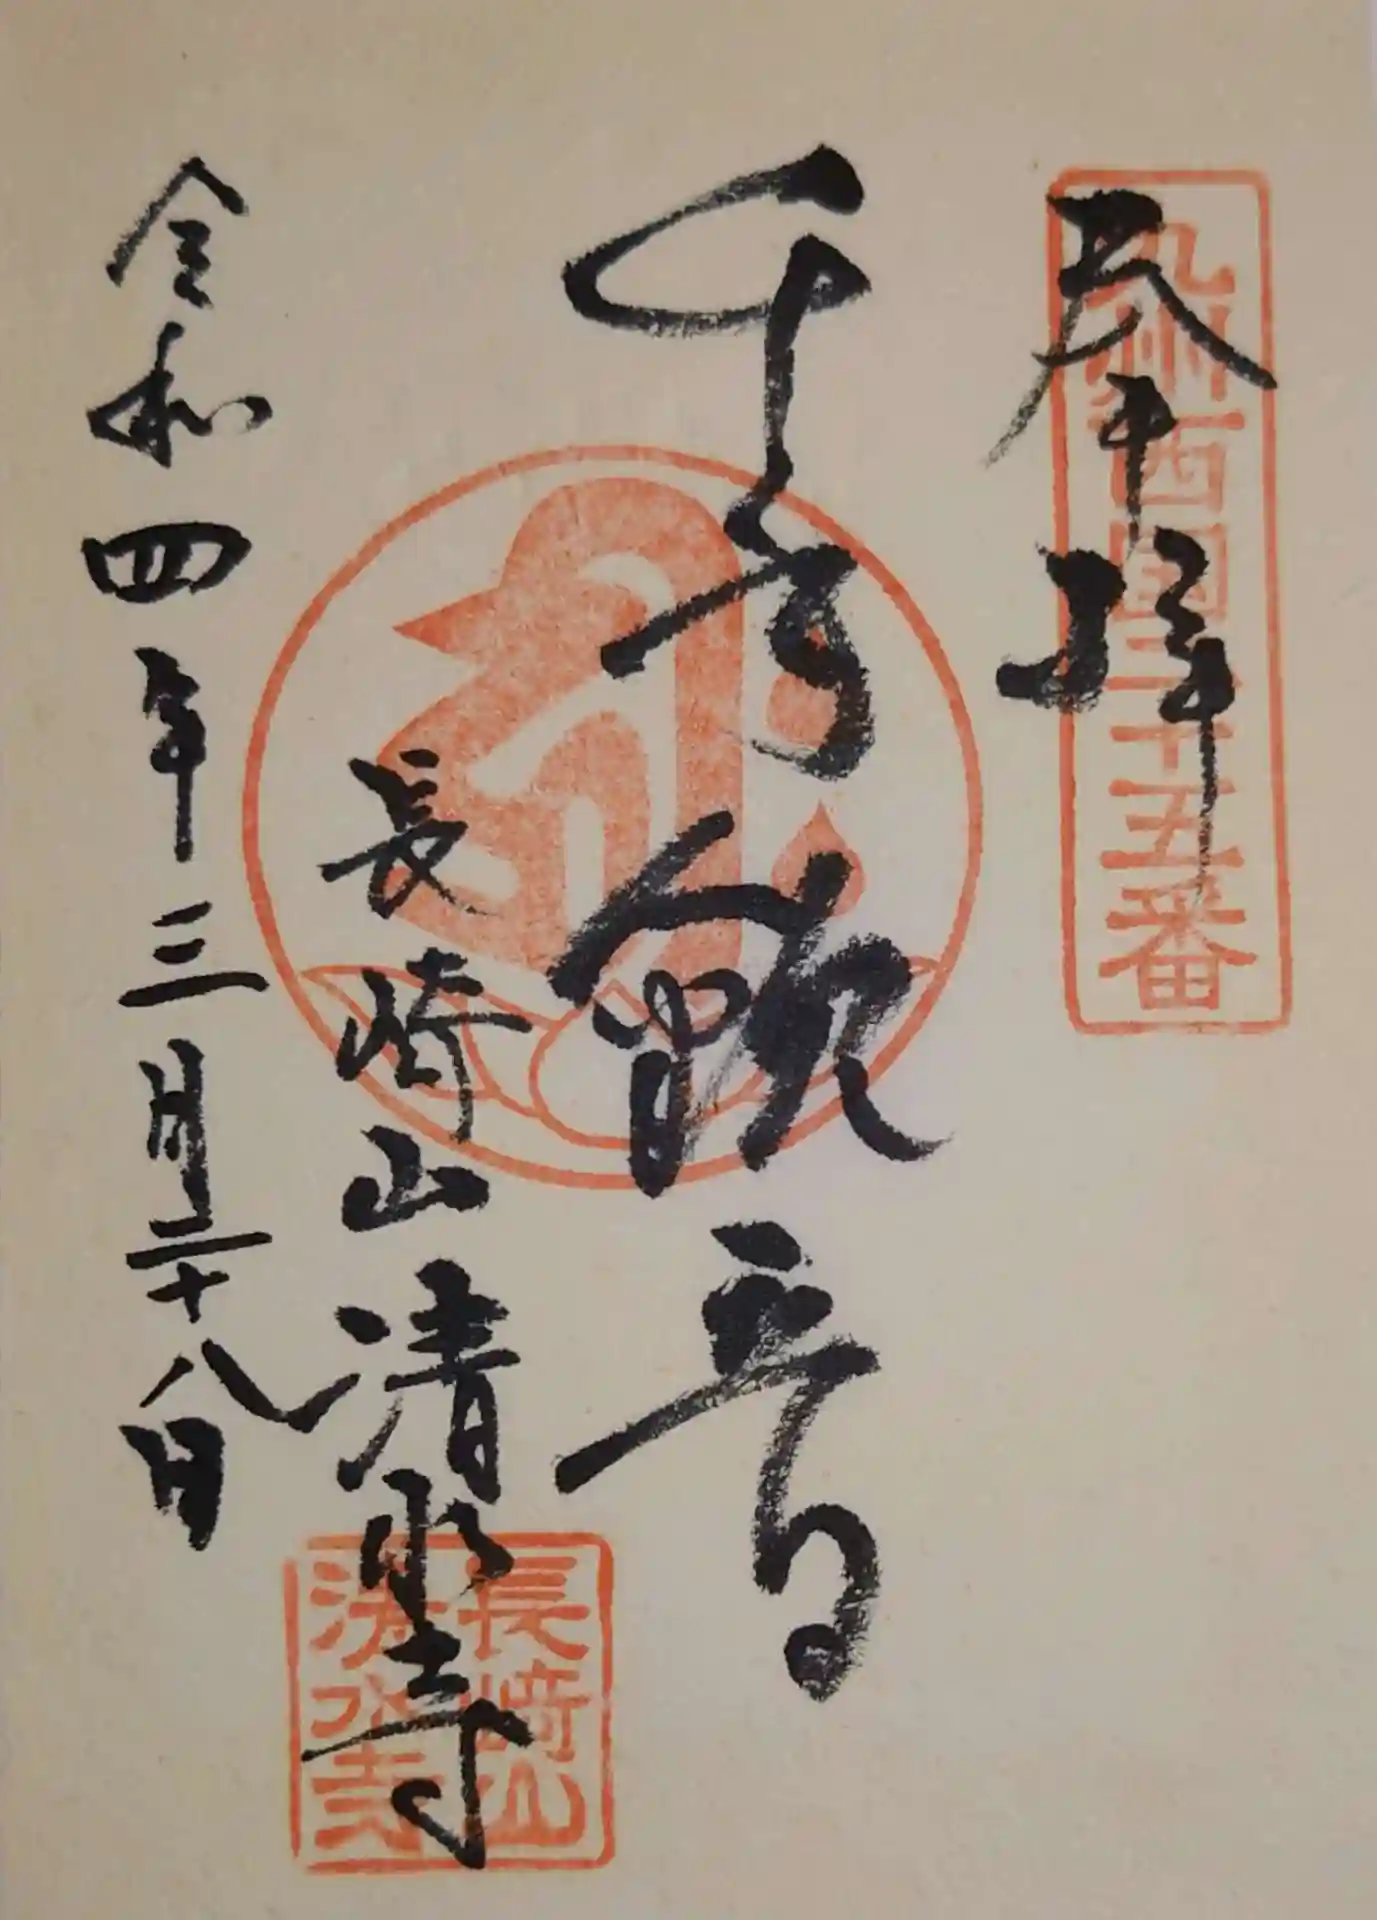 九州西国二十五番
奉拝
千手観音
長崎山清水寺
令和四年三月二十八日
長崎山
清水寺